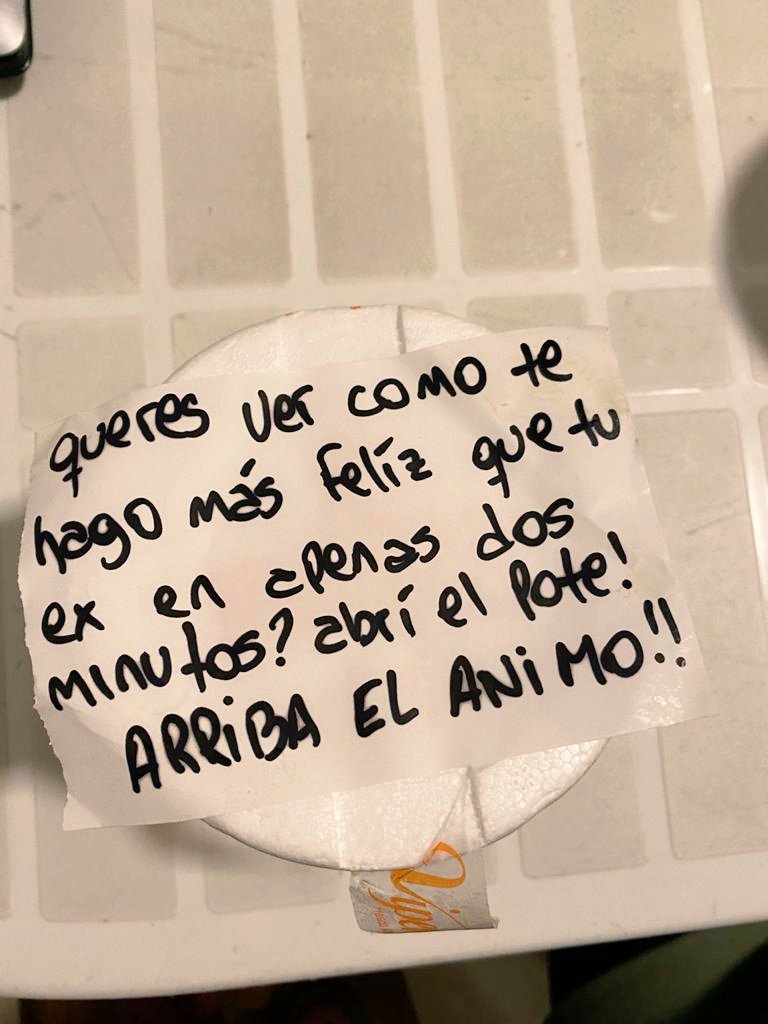 queres ver como te
hago más felíz que tu
ex en apenas dos
minutos? abrí el pote!
ARRIBA EL ANIMO!!